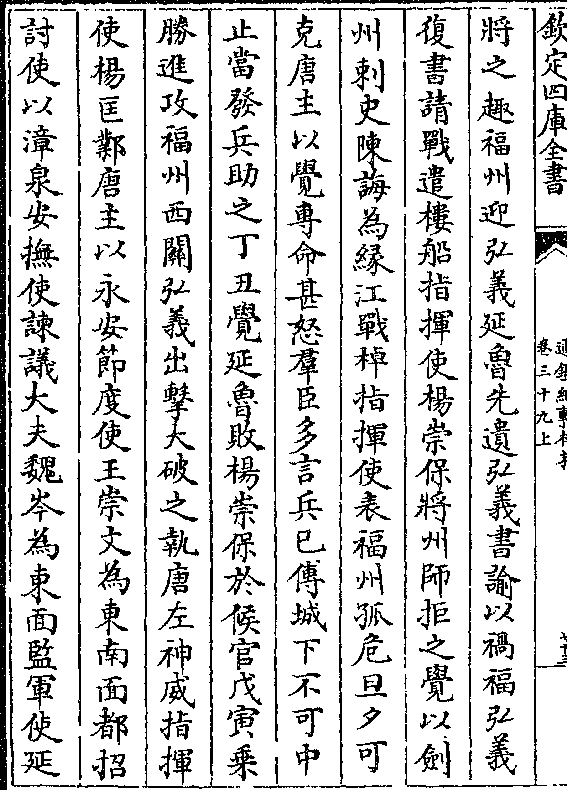 欽定四庫全書
通鑑紀事本末
卷三十九上
將之趣福州迎弘義延魯先遺弘義書諭以禍福弘義
復書請戰遣樓船指揮使楊崇保將州師拒之覺以劍
州刺史陳誨為緣江戰棹指揮使表福州孤危旦夕可
克唐主以覺專命甚怒羣臣多言兵已傅城下不可中
止當發兵助之丁丑覺延魯敗楊崇保於候官戊寅乗
勝進攻福州西關弘義出擊大破之執唐左神威指揮
使楊匡鄴唐主以永安節度使王崇文為東南面都招
討使以漳泉安撫使諫議大夫魏岑為東面監軍使延